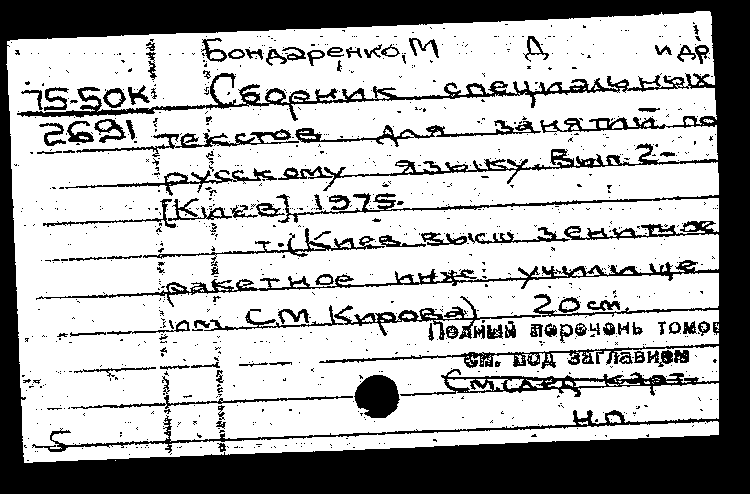 Бондаренко, М Д и др
75-50К Сборник специальных
2691 текстов для занятий по
русскому языку. Вып. 2-
[Киев], 1975.
т. (Киев. высш зенитное
ракетное инж. училище
им. С.М. Кирова) 20 cm.
Полный перечень томов
см. под заглавием
См. след. карт.
Н.П.
5